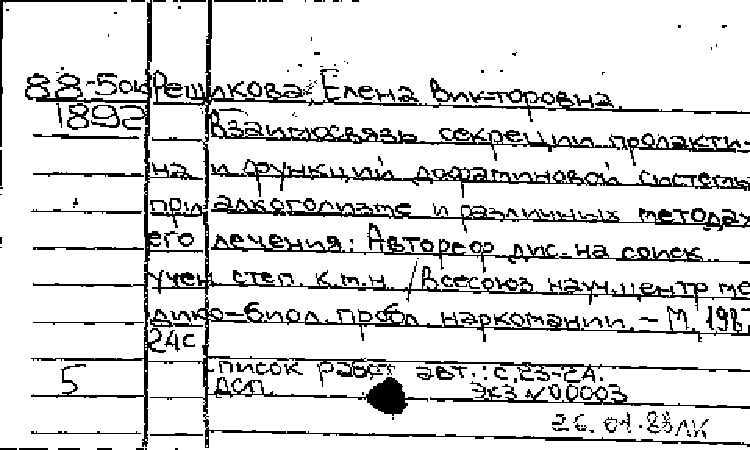 88-5ок Решикова, Елена Викторовна.
1892 Взаимосвязь секреции пролакти-
на и функций дофаминовой системы
при алкоголизме и различных методах
его лечения: Автореф. дис. на соиск.
учен. степ. к.м.н. / Всесоюз. науч. центр ме
дико-биол. пробл. наркомании. - М., 1987
24с
Список работ авт.: с.23-24.
5 ДСП Экз N00003
26.01.88 ЛК